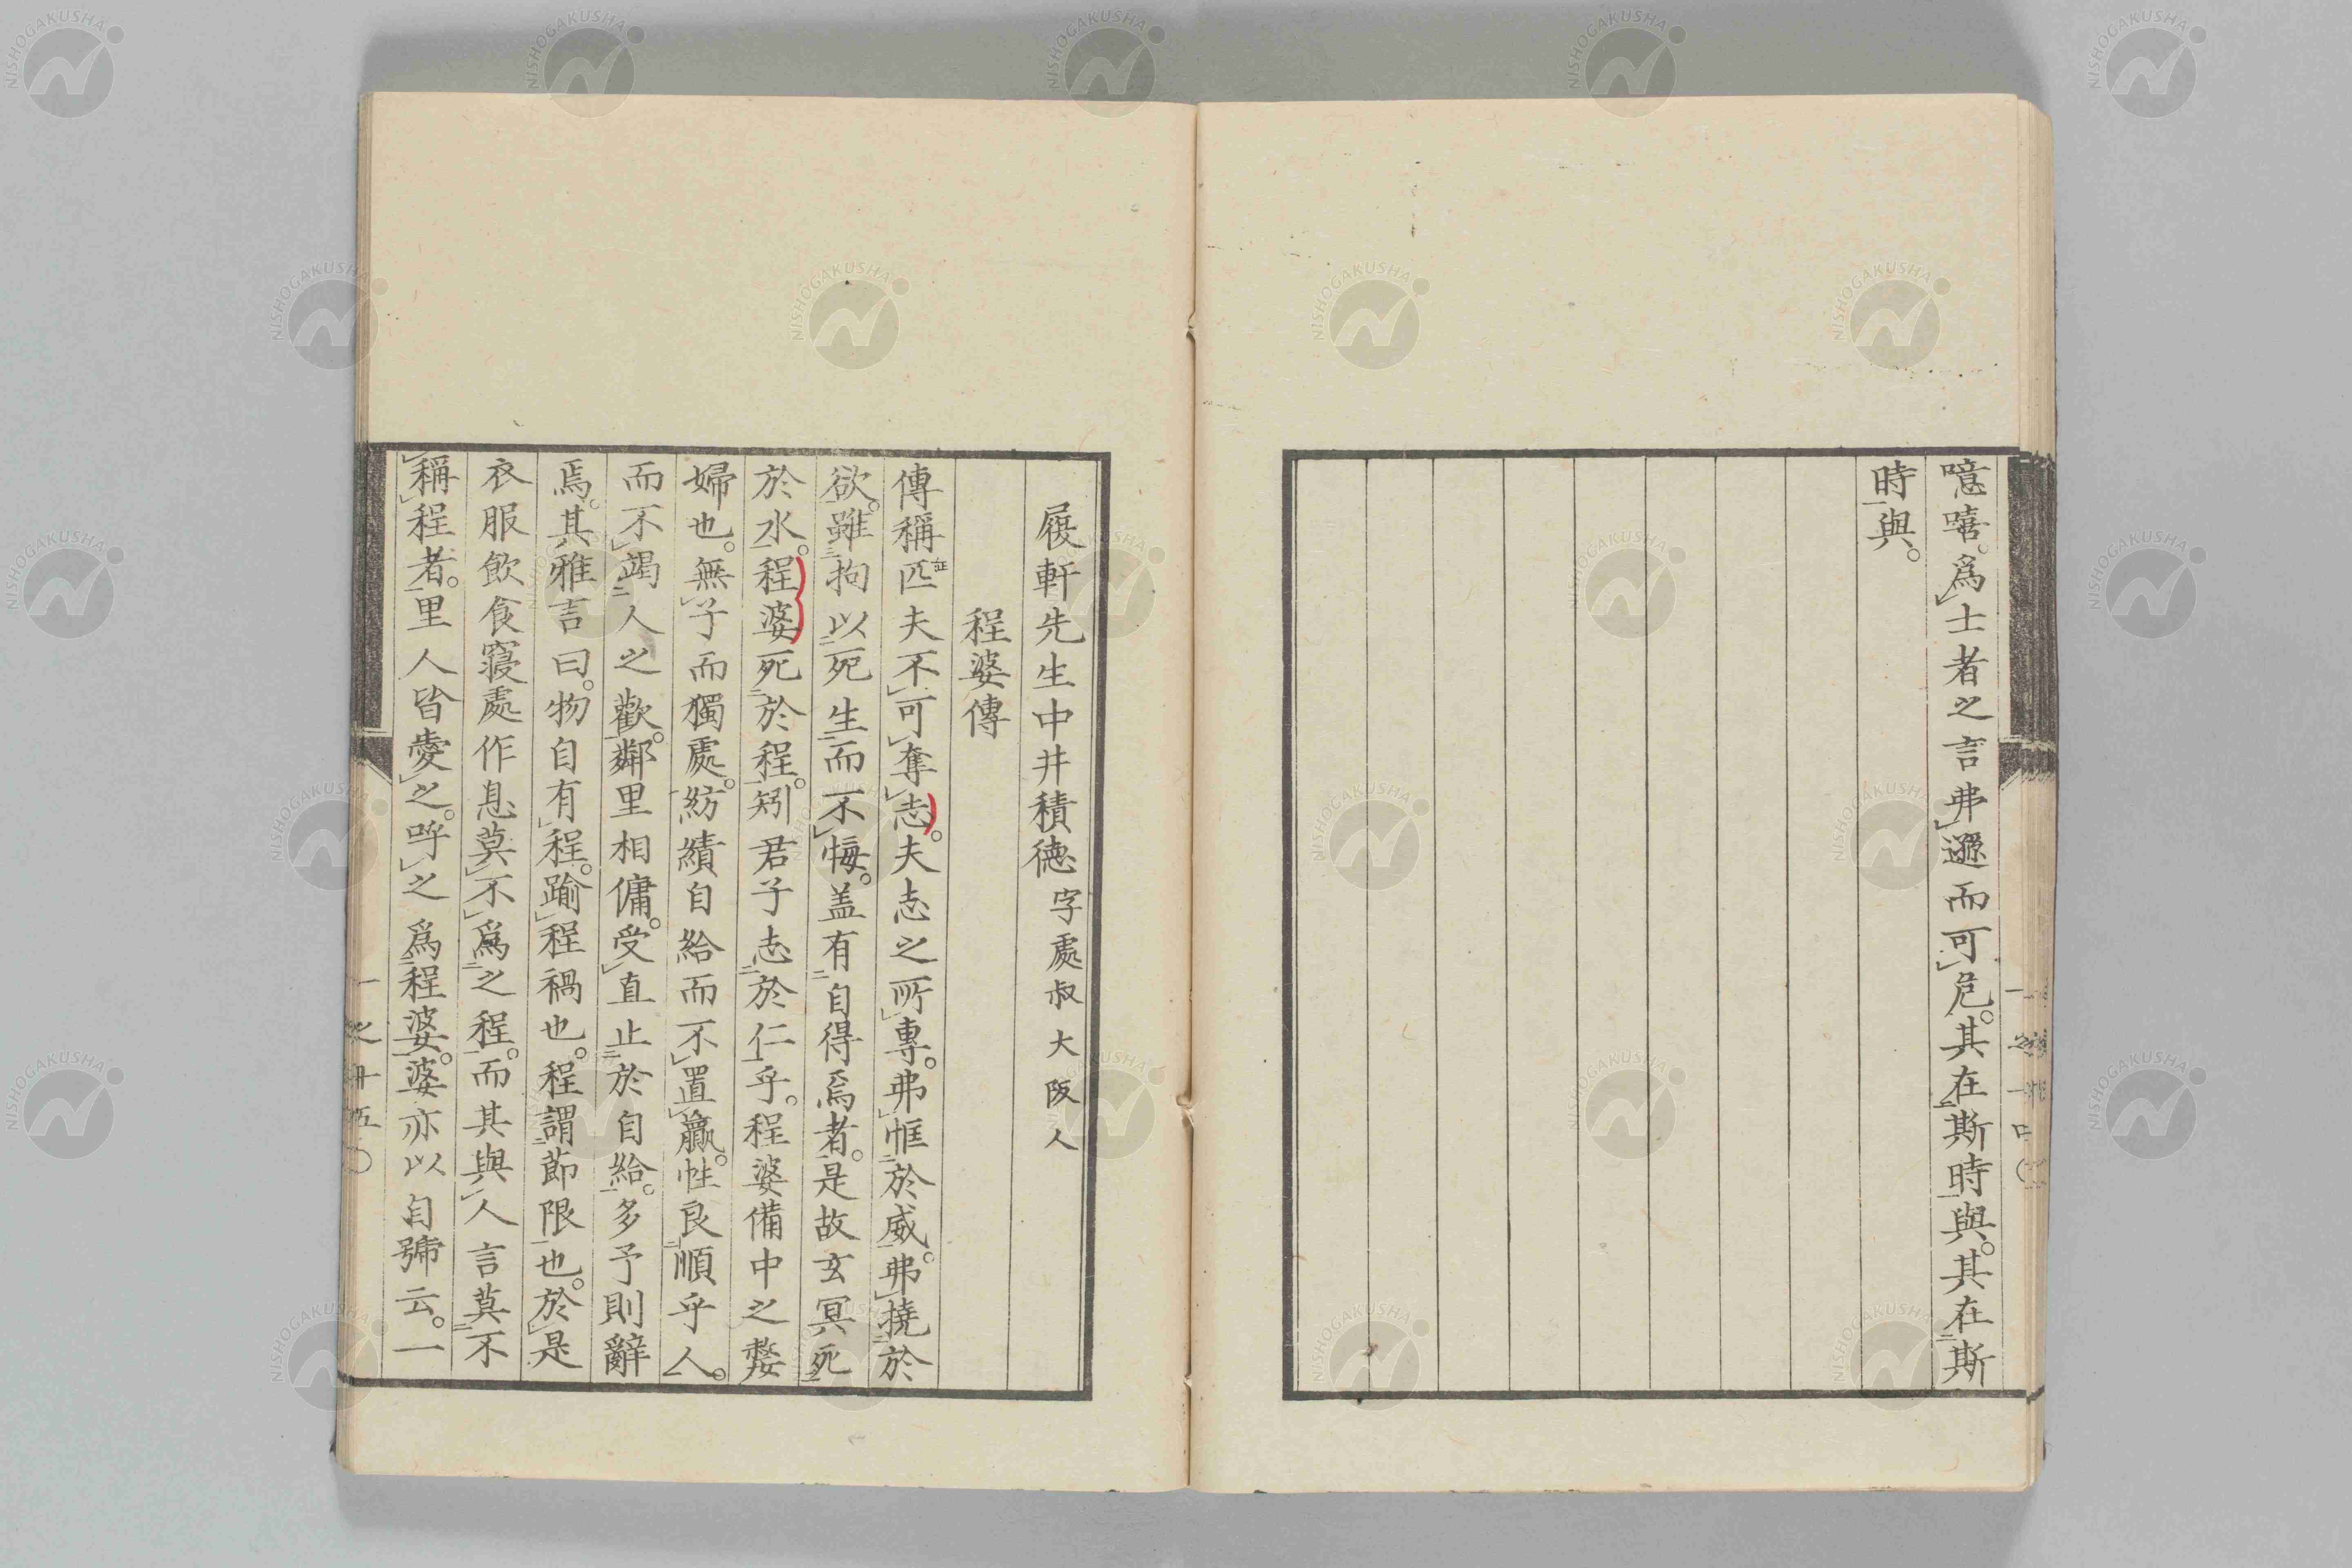 噫嘻。爲士者之言弗遜而可危。其在斯時與。其在斯
時與。
履軒先生中井積德 字處叔 大阪人
程婆傳
傳稱匹夫不可奪志。夫志之所專。弗恇於威。弗撓於
欲。雖拘以死生而不悔。盖有自得焉者。是故玄冥死
於水。程婆死於程。矧君子志於仁乎。程婆備中之嫠
婦也。無子而獨處。紡績自給而不置贏。性良順乎人。
而不竭人之歡。鄰里相傭。受直止於自給。多予則辭
焉。其雅言曰。物自有程。踰程禍也。程謂節限也。於是
衣服飮食寢處作息莫不爲之程。而其與人言莫不
稱程者。里人皆愛之。呼之爲程婆。婆亦以自號云。一
NISHOGAKUSHA